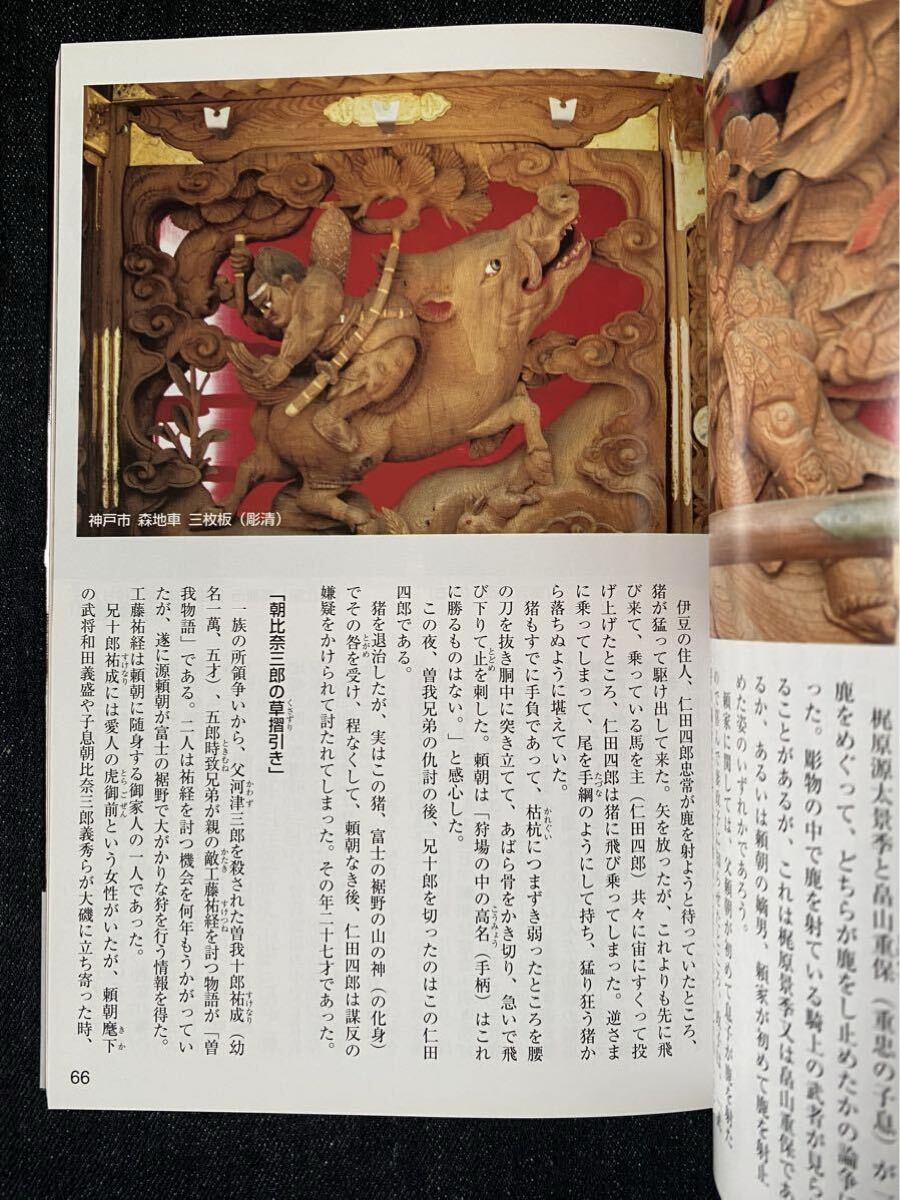 梶原源太景季と畠山重保（重忠の子息）が一
鹿をめぐって、どちらが鹿をし止めたかの論争
った。彫物の中で鹿を射ている騎上の武者が見ら
ることがあるが、これは梶原景季又は畠山重保であ
るか、あるいは頼朝の嫡男、頼家が初めて鹿を射止
めた姿のいずれかであろう。
頼家に関しては、父頼朝が初めて息子が鹿を射た
神戸市 森地車 三枚板（彫清）
伊豆の住人、仁田四郎忠常が鹿を射ようと待っていたところ、
猪が猛って駆け出して来た。矢を放ったが、これよりも先に飛
び来て、乗っている馬を主（仁田四郎）共々に宙にすくって投
げ上げたところ、仁田四郎は猪に飛び乗ってしまった。逆さま
に乗ってしまって、尾を手綱のようにして持ち、猛り狂う猪か
たづな
ら落ちぬように堪えていた。
猪もすでに手負であって、枯杭につまずき弱ったところを腰
かれぐい
の刀を抜き胴中に突き立てて、あばら骨をかき切り、急いで飛
び下りて止を刺した。頼朝は「狩場の中の高名（手柄）はこれ
とどめ
こうみょう
に勝るものはない。」と感心した。
この夜、曽我兄弟の仇討の後、兄十郎を切ったのはこの仁田
四郎である。
猪を退治したが、実はこの猪、富士の裾野の山の神（の化身）
でその咎を受け、程なくして、頼朝なき後、仁田四郎は謀反の
とがめ
嫌疑をかけられて討たれてしまった。その年二十七才であった。
「朝比奈三郎の草摺引き」
くさずり
一族の所領争いから、父河津三郎を殺された曽我十郎祐成（幼
かわず
すけなり
名一萬、五才）、五郎時致兄弟が親の敵工藤祐経を討つ物語が「曽
ときむね
かたき
すけつね
我物語」である。二人は祐経を討つ機会を何年もうかがってい
たが、遂に源頼朝が富士の裾野で大がかりな狩を行う情報を得た。
工藤祐経は頼朝に随身する御家人の一人であった。
兄十郎祐成には愛人の虎御前という女性がいたが、頼朝麾下
すけなり
とらごぜん
きか
の武将和田義盛や子息朝比奈三郎義秀らが大磯に立ち寄った時、
66